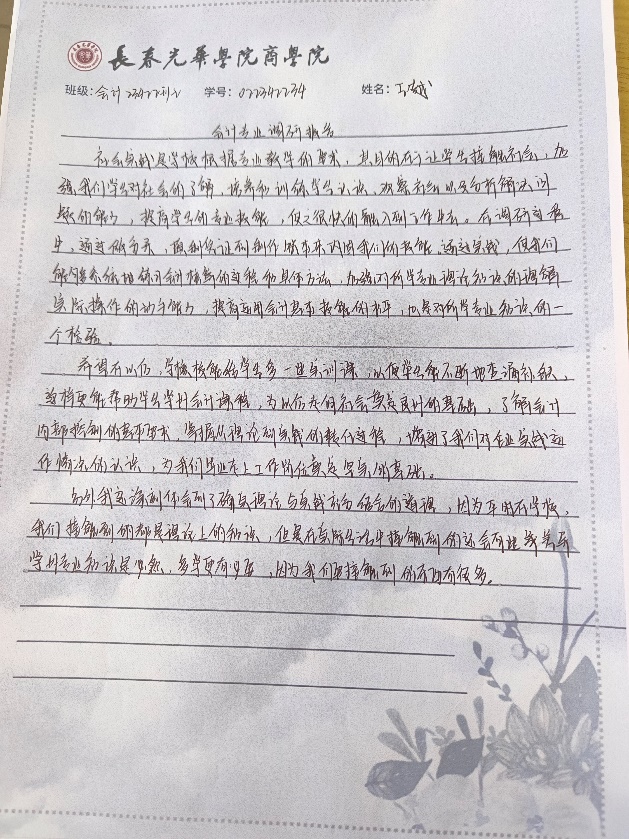 長春光華學院商學院
班级:会计 学号: 姓名:
会计专业调研报告
社会实践是学校根据专业教学的要求，其目的在于让学生接触社会，加
强我们学生对社会的了解，培养和训练学生认识、观察社会以及分析解决问
题的能力，提高学生的专业技能，使之很快的融入到工作中去。在调研过程
中，通过做分录，填制凭证到制作账本来巩固我们的技能，通过实践，使我们
能够系统地练习会计核算的过程和具体方法，加强对所学专业理论知识的理解
实际操作的动手能力，提高运用会计基本技能的水平，也是对所学专业知识的一
个检验。
希望在以后，学校能够给学生多一些实训课，以便学生能不断地查漏补缺，
这样更能帮助学生学习会计课程，为以后走向社会奠定良好的基础，了解会计
内部控制的基本要求，掌握从理论到实践的转化过程，增进了我们对企业实践运
作情况的认识，为我们毕业走上工作岗位奠定坚实的基础。
另外我还深刻体会到了确实理论与实践充分结合的道理，因为平时在学校，
我们接触到的都是理论上的知识，但是在实际生活中接触到的还会有
学习专业知识是 ，多学更有必要，因为我们要接触到的东西有很多。